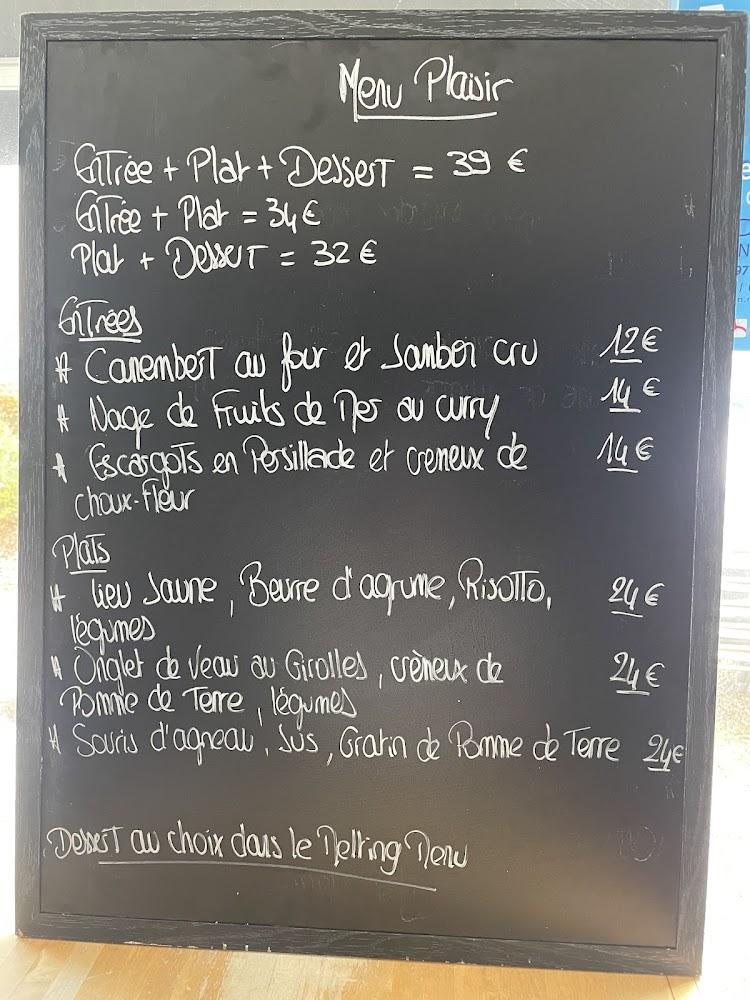 Menu Plaisir
Entrée + Plat + Dessert = 39 €
Entrée + Plat = 34 €
Plat + Dessert = 32 €
Entrées
* Camembert au four et Jambon cru 12 €
* Nage de Fruits de Mer au curry 14 €
* Escargots en Persillade et cremeux de 14 €
choux-fleur
Plats
* Lieu Jaune, Beurre d'agrume, Risotto, 24 €
légumes
* Onglet de Veau au Girolles, crèmeux de 24 €
Pomme de Terre, légumes
* Souris d'agneau, Jus, Gratin de Pomme de Terre 24 €
Dessert au choix dans le Melting Menu